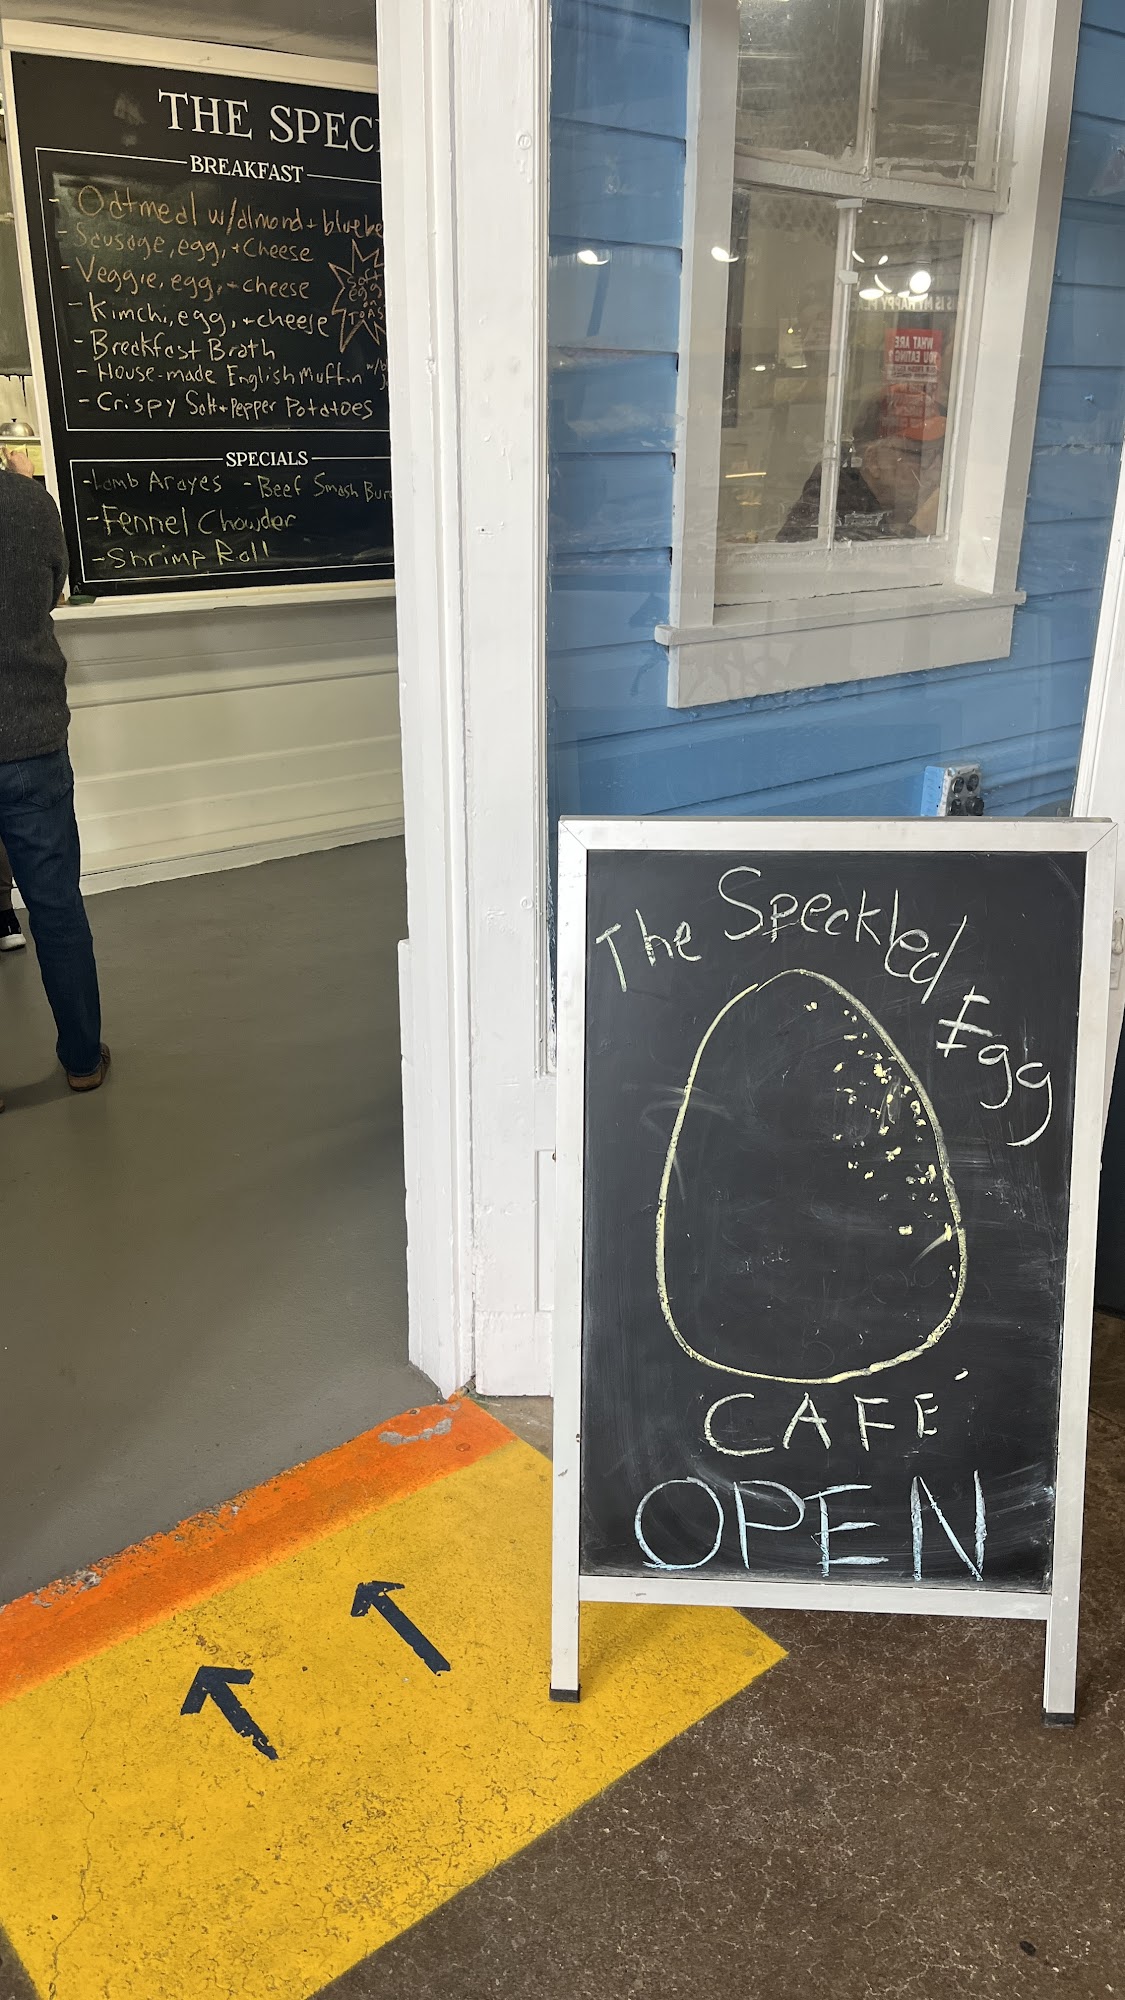 THE SPEC
BREAKFAST
- Oatmeal w/almond + bluebe
- Sausage, egg, + Cheese
- Veggie, egg, + cheese
- Kimchi, egg, + cheese
SOFT
EGG
ON
TOAS
- Breakfast Broth
- House-made English Muffin w/b
- Crispy Salt + Pepper Potatoes
SPECIALS
- Lamb Arayes - Beef Smash Bur
- Fennel Chowder
- Shrimp Roll
WHAT ARE
YOU EATING?
The Speckled Egg
CAFÉ
OPEN